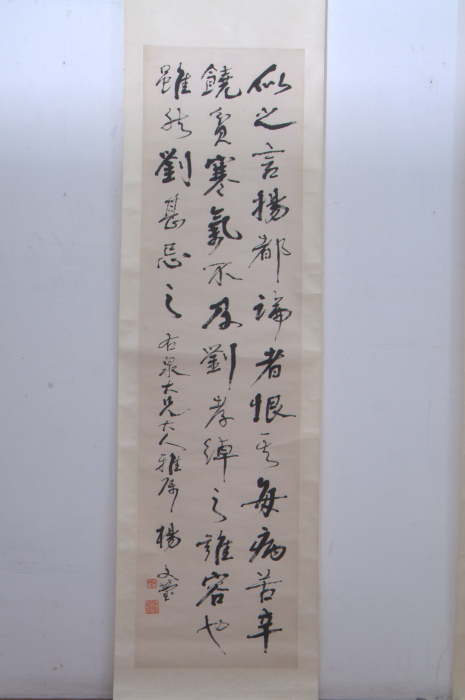 似之言揚都論者恨其每病苦辛
饒貧寒氣不及劉孝綽之雍容也
雖然劉甚忌之 右泉大兄大人雅屬 楊文瑩